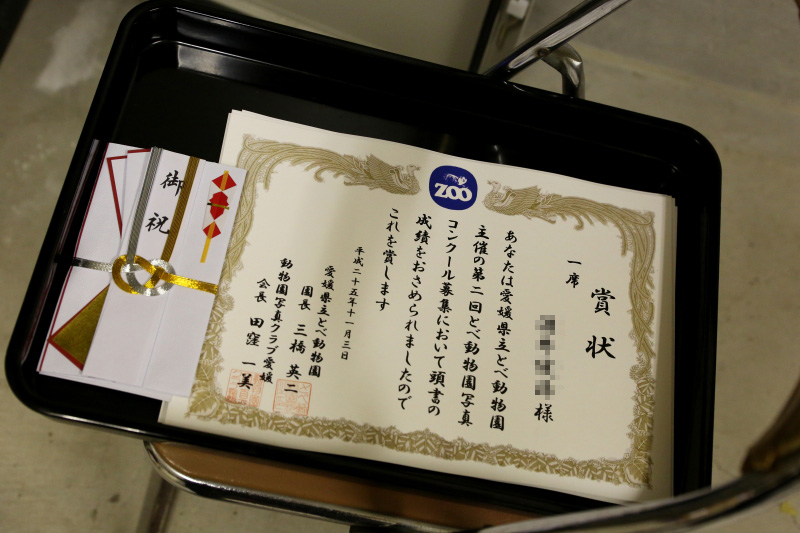 賞状
一席
様
あなたは愛媛県立とべ動物園
主催の第二回とべ動物園写真
コンクール募集において頭書の
成績をおさめられましたので
これを賞します
平成二十五年十一月三日
愛媛県立とべ動物園
園長 三橋 英二
動物園写真クラブ愛媛
会長 田窪 一美
ZOO
御祝